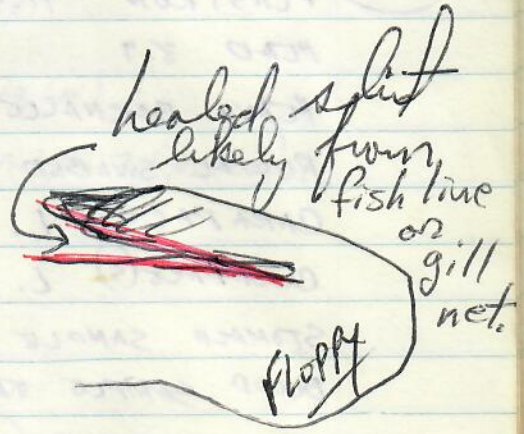 healed split
likely from
fish line
or
gill
net.
FLOPPY